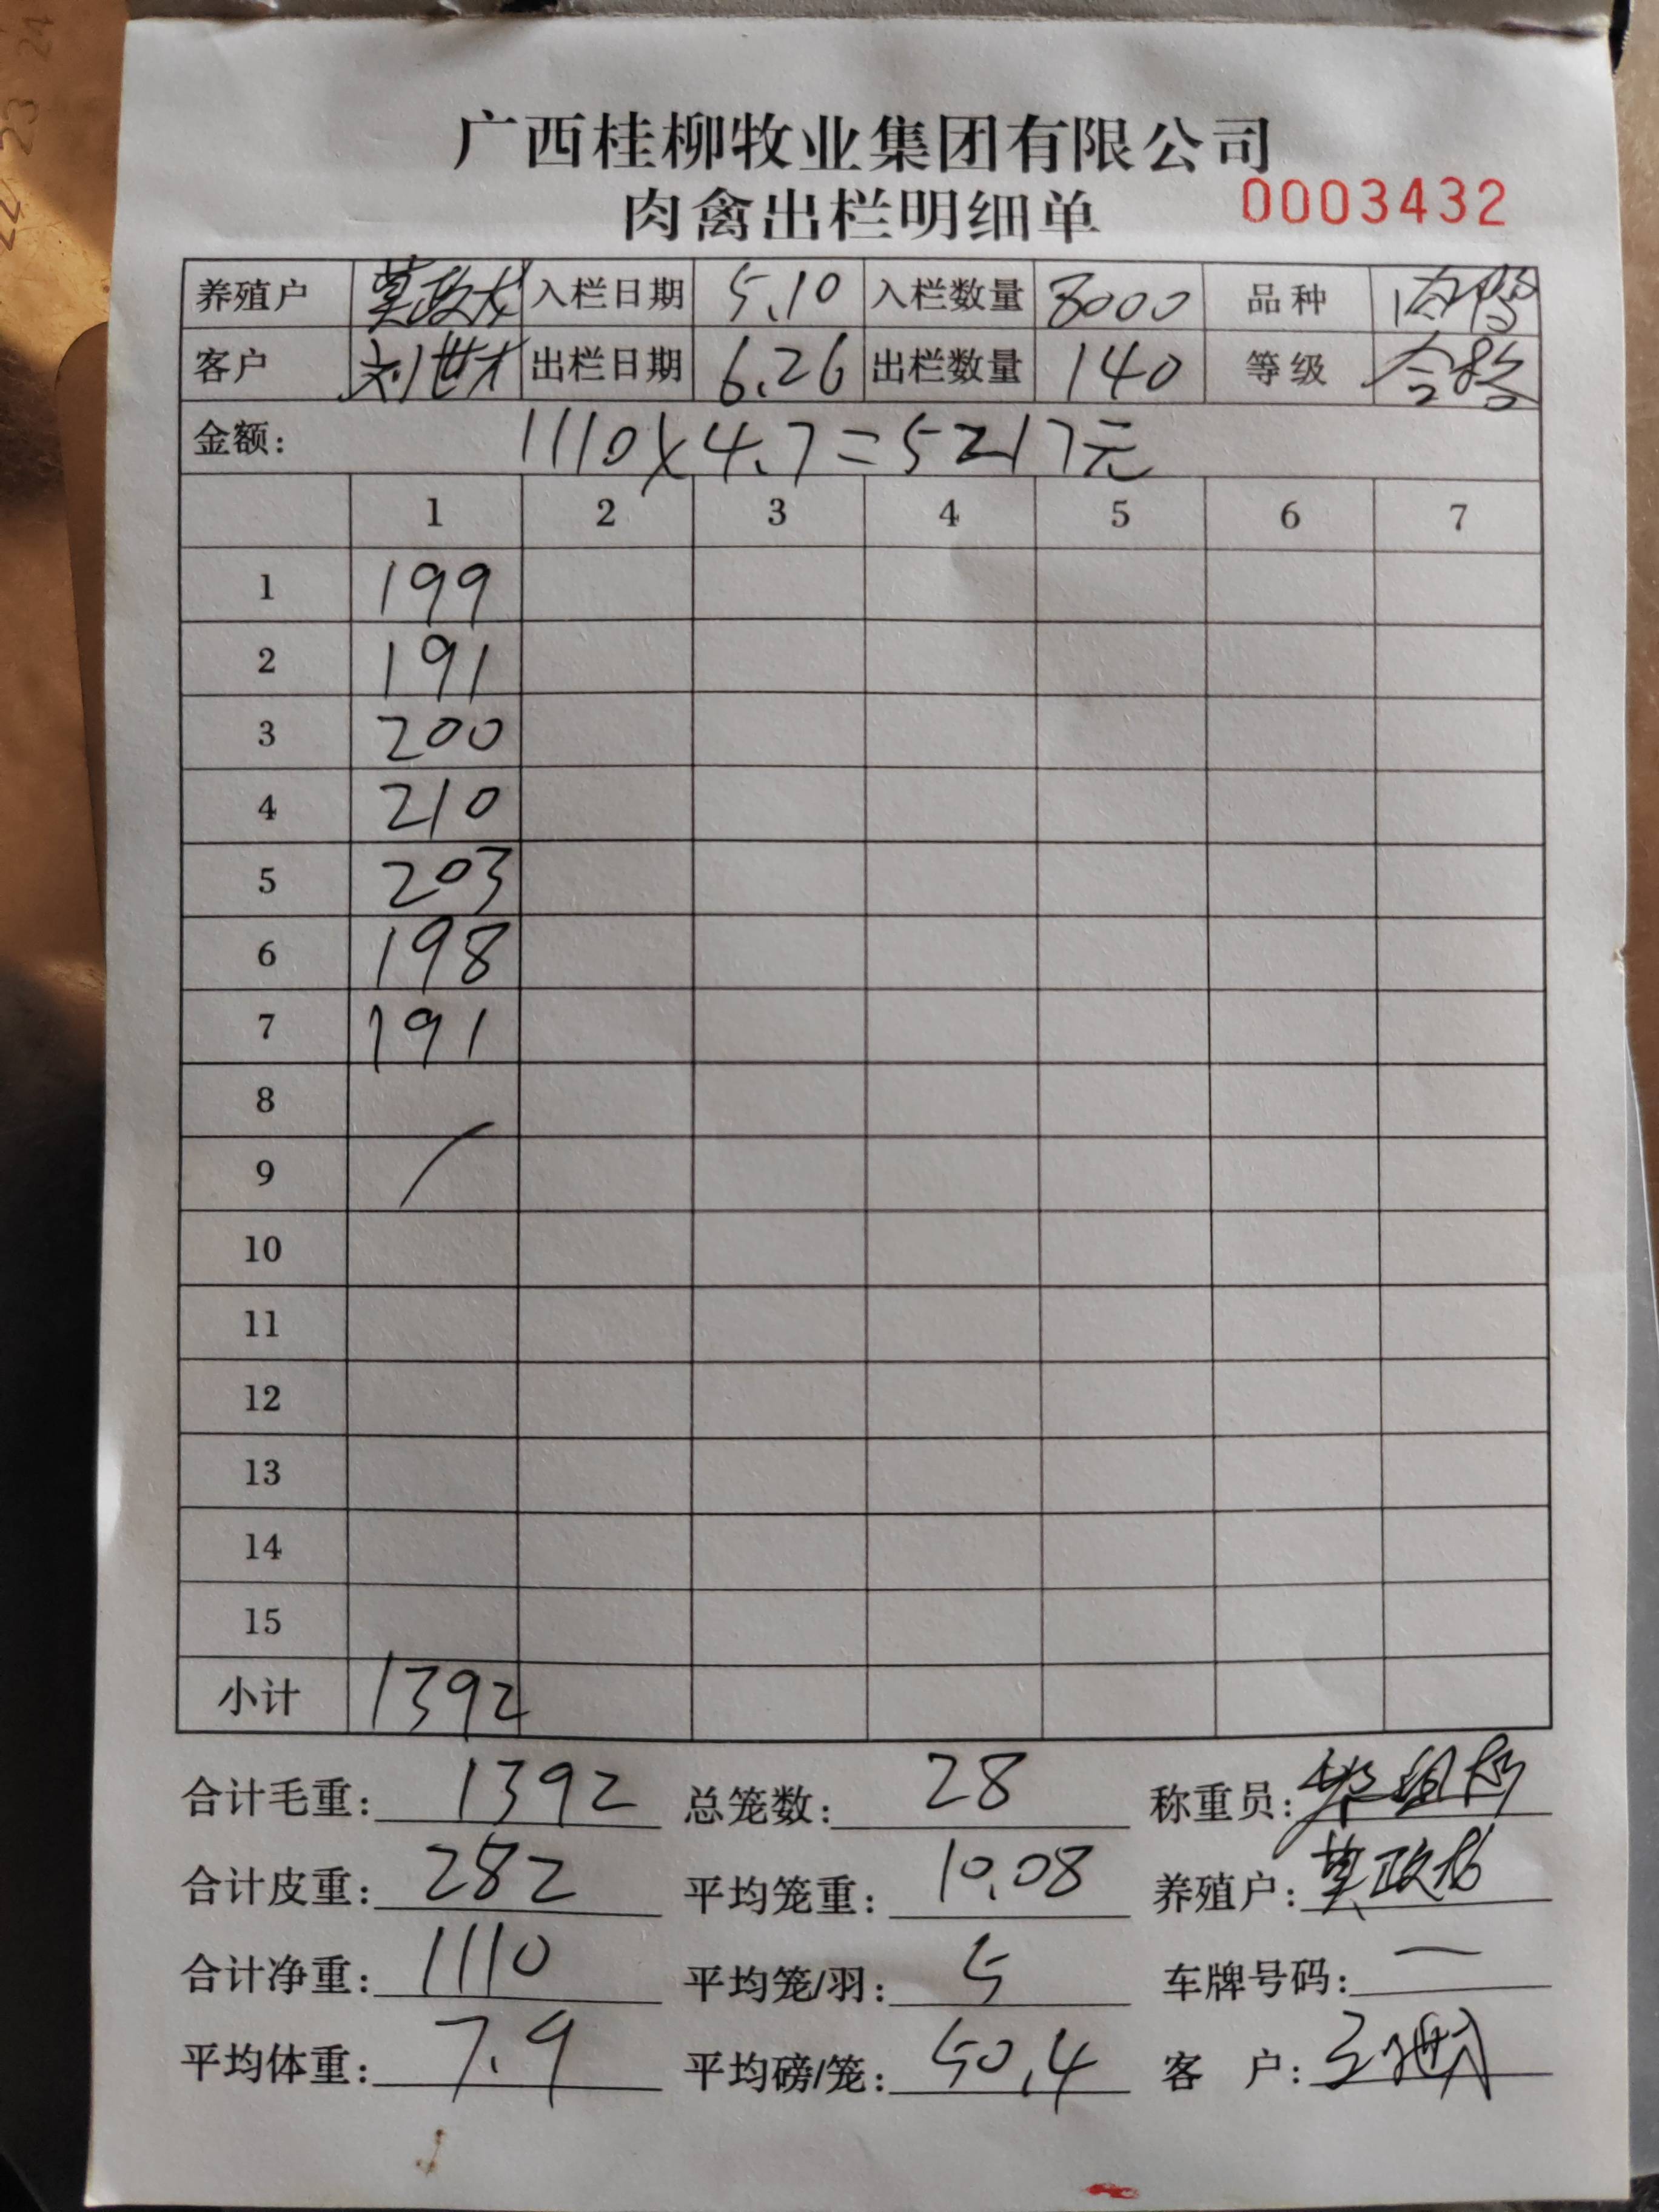 广西桂柳牧业集团有限公司
肉禽出栏明细单 0003432
养殖户 莫政 入栏日期 5.10 入栏数量 8000 品种 肉鸭
客户 刘世才 出栏日期 6.26 出栏数量 140 等级 合格
金额: 1110×4.7=5217元
1 2 3 4 5 6 7
1 199
2 191
3 200
4 210
5 203
6 198
7 191
8
9
10
11
12
13
14
15
小计 1392
合计毛重: 1392 总笼数: 28 称重员:
合计皮重: 282 平均笼重: 10.08 养殖户: 莫政
合计净重: 1110 平均笼/羽: 5 车牌号码: 一
平均体重: 7.9 平均磅/笼: 50.4 客 户: